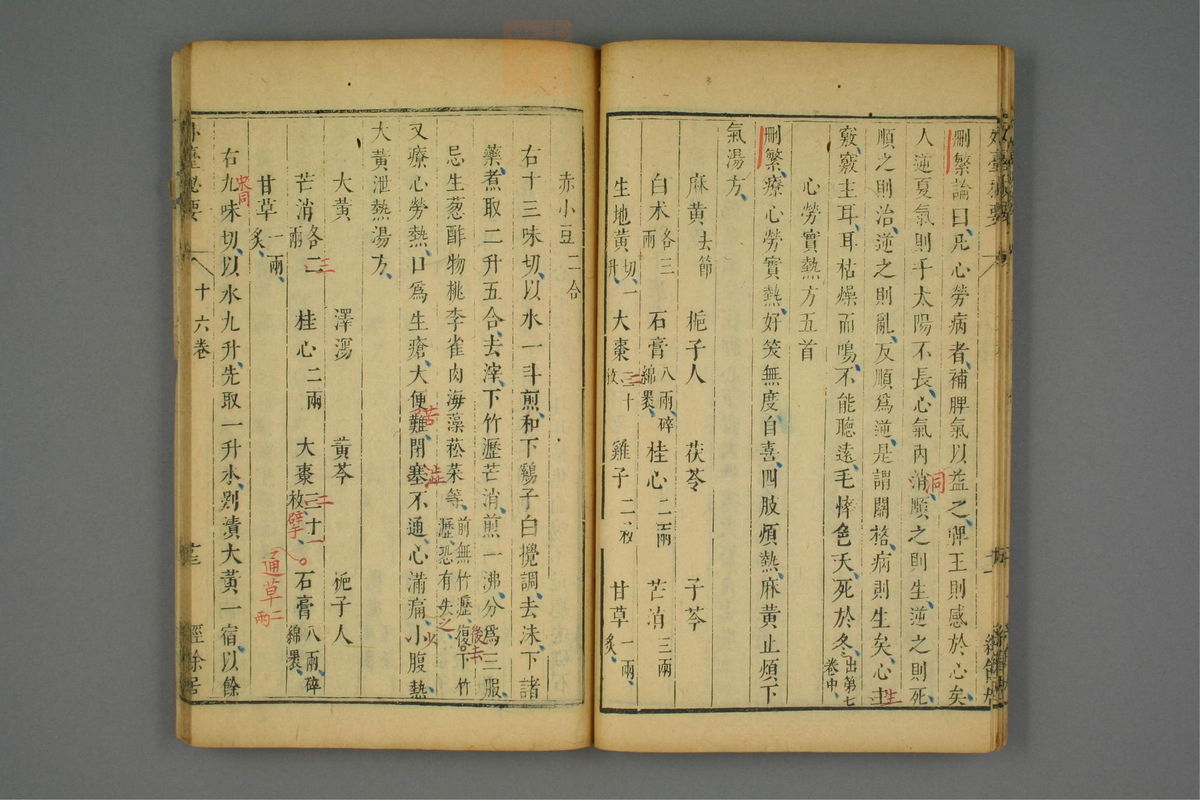 刪繁論曰凡心勞病者補脾氣以益之脾王則感於心矣
人逆夏氣則手太陽不長心氣内消順之則生逆之則死
順之則治逆之則亂反順爲逆是謂關格病則生矣心主
竅竅主耳耳枯燥而鳴不能聽遠毛悴色夭死於冬出第七卷中
心勞實熱方五首
刪繁療心勞實熱好笑無度自喜四肢煩熱麻黄止煩下
氣湯方
麻黄去節 梔子人 茯苓 子芩
白术各三兩 石膏八兩碎綿褁 桂心二兩 芒消三兩
生地黄切一升 大棗三十枚 雞子二枚 甘草一兩炙
赤小豆二合
右十三味切以水一斗煎和下鷄子白攪調去沫下諸
藥煮取二升五合去滓下竹瀝芒消煎一沸分爲三服
忌生葱酢物桃李雀肉海藻菘菜等前無竹瀝後下竹瀝恐有失之
又療心勞熱口爲生瘡大便難閉塞不通心滿痛小腹熱
大黄泄熱湯方
大黄 澤瀉 黄芩 梔子人
芒消各二兩 桂心二兩 大棗三十枚 石膏八兩碎綿褁
甘草一兩炙
通草二兩
右九味切以水九升先取一升水別漬大黄一宿以餘
外臺秘要 十六卷 經餘居